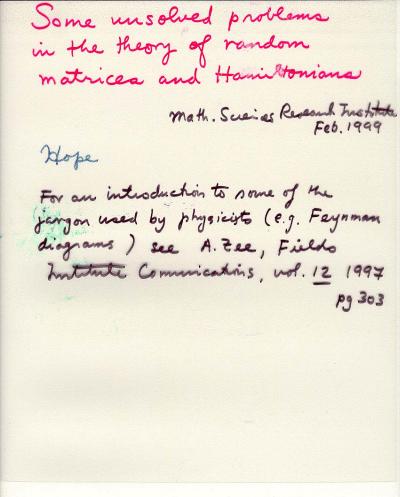 Some unsolved problems
in the theory of random
matrices and Hamiltonians
Math. Sciences Research Institute
Feb. 1999
Hope
For an introduction to some of the
jargon used by physicists (e.g. Feynman
diagrams) see A. Zee, Fields
Institute Communications, vol. 12 1997
pg 303